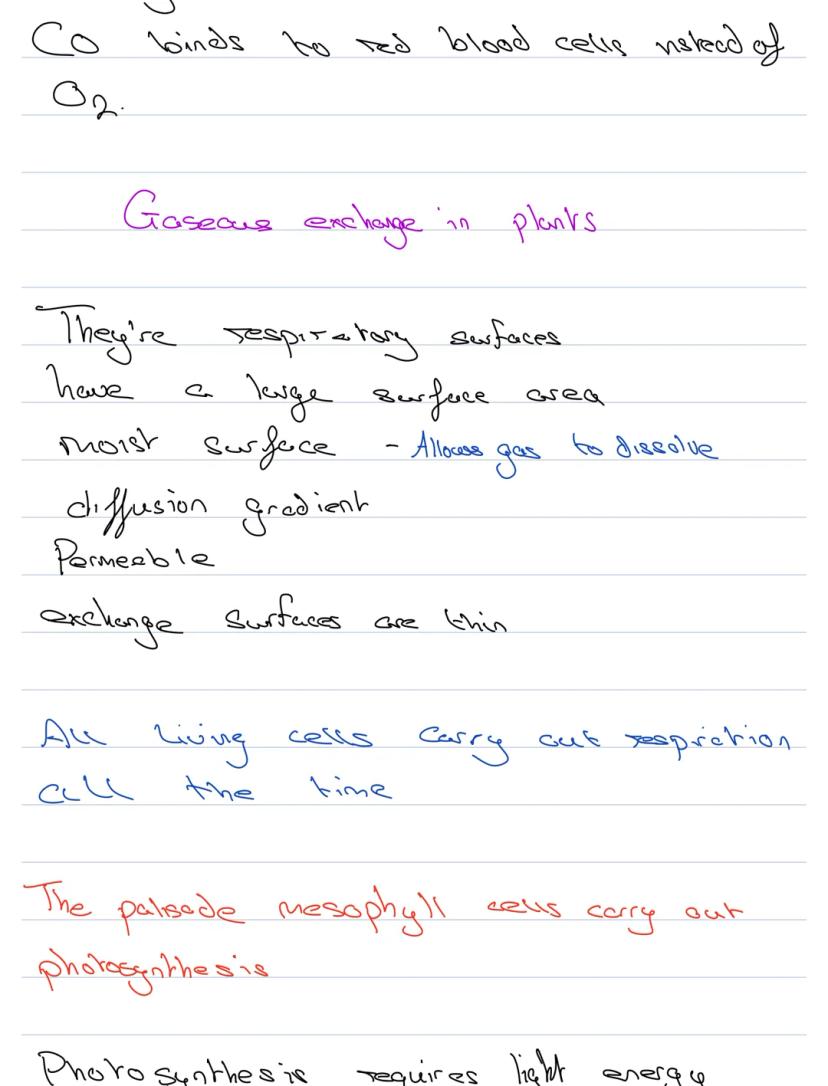 CO binds to red blood cells nstead of
O2.
Gaseous exchange in plants
They're respiratory surfaces
have a large surface area
moist surface - Allows gas to dissolve
diffusion gradient
Permeable
exchange surfaces are thin
All living cells carry out respiration
all the time
The palisade mesophyll cells carry out
photosynthesis
Photosynthesis requires light energy